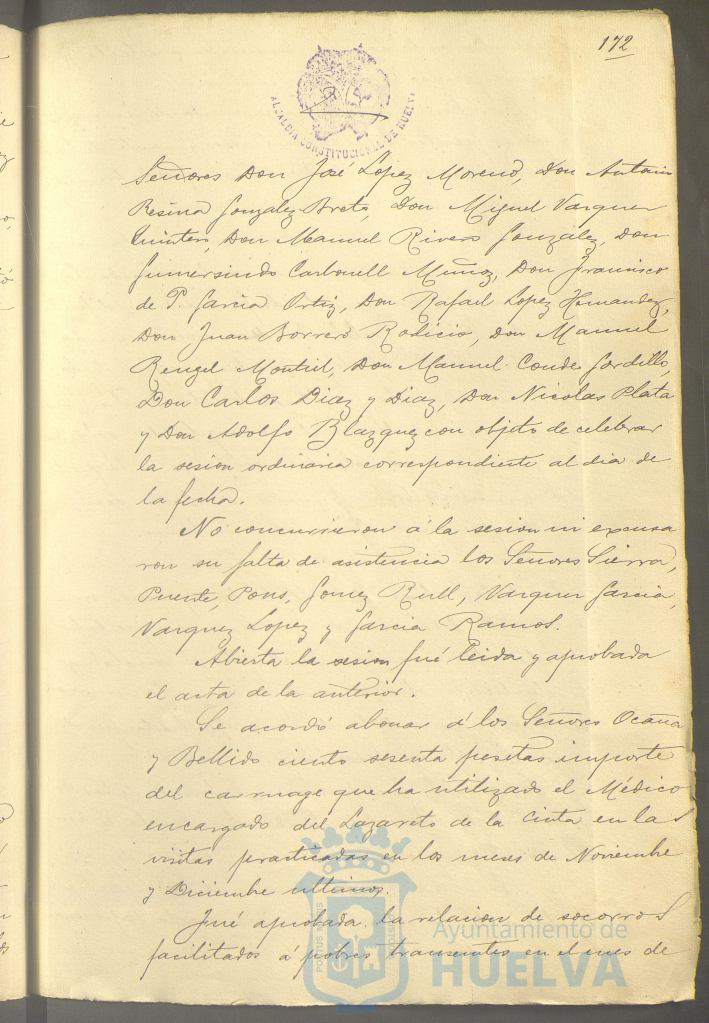 172
ALCALDIA CONSTITUCIONAL DE HUELVA
Señores Don José Lopez Moreno, Don Antonio
Resina Gonzalez Brets, Don Miguel Vazquez
Quintero, Don Manuel Rivero Gonzalez, Don
Gumersindo Carbonell Muñoz, Don Francisco
de P. Garcia Ortiz, Don Rafael Lopez Hernandez,
Don Juan Borrero Rodicio, Don Manuel
Rengel Montiel, Don Manuel Conde Gordillo,
Don Carlos Diaz y Diaz, Don Nicolas Plata
y Don Adolfo Blazquez con objeto de celebrar
la sesion ordinaria correspondiente al dia de
la fecha.
No concurrieron á la sesion ni excusa
ron su falta de asistencia los Señores Sierra,
Puente, Pons, Gomez Rull, Vazquez Garcia,
Vazquez Lopez y Garcia Ramos.
Abierta la sesion fué leida y aprobada
el acta de la anterior.
Se acordó abonar á los Señores Ocaña
y Bellido ciento sesenta pesetas importe
del carruage que ha utilizado el Médico
encargado del Lazareto de la Cinta en las
visitas practicadas en los meses de Noviembre
y Diciembre ultimos.
Fué aprobada la relacion de socorros
facilitados á pobres transeuntes en el mes de
Ayuntamiento de
HUELVA